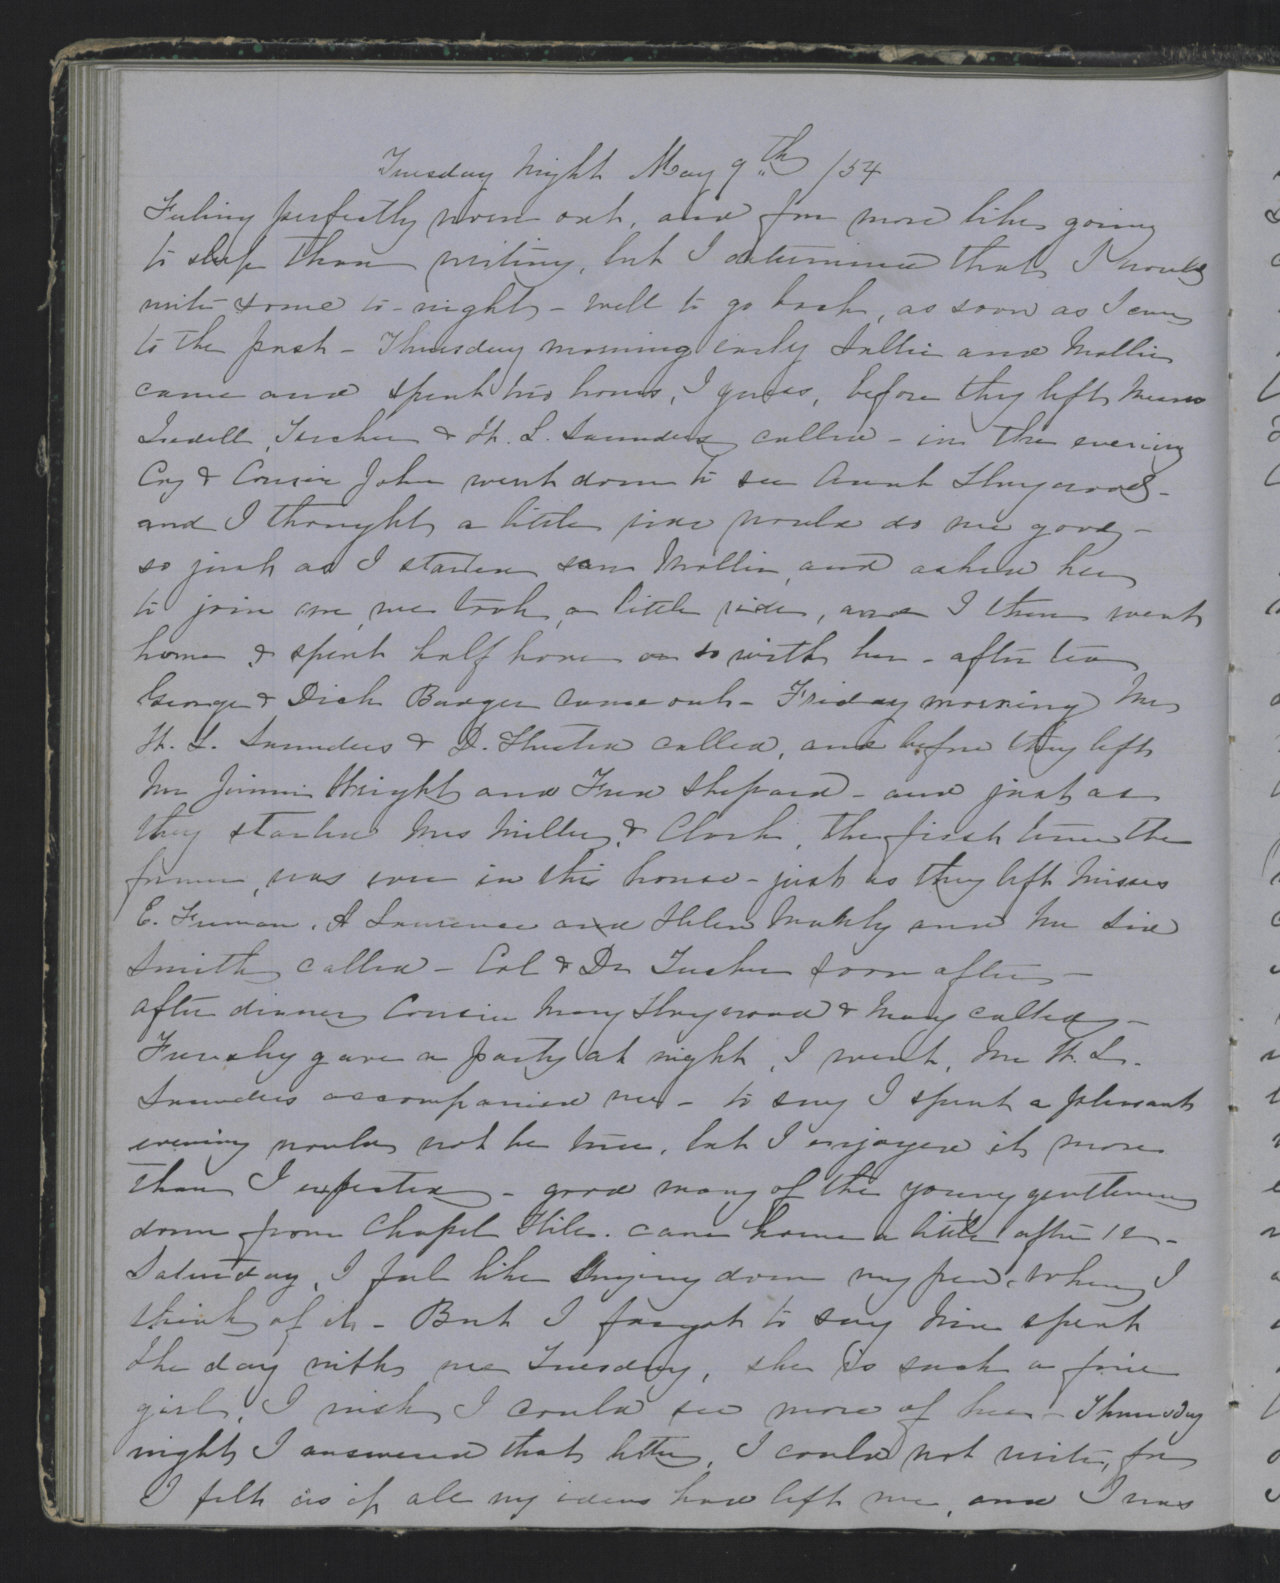 Tuesday Night May 9th /54
Feeling perfectly worn out, and far more like going
to sleep than writing, but I determined that I would
write some to-night - well to go back, as soon as I can
to the past - Thursday morning early Sallie and Mollie
came and spent two hours, I guess, before they left Messrs
Iredell, Tucker & W. L. Saunders called - in the evening
& Cousin John went down to see Aunt Haywood -
and I thought a little ride would do me good -
so just as I started saw Mollie, and asked her
to join me, we took a little ride, and I then went
home & spent half hour or so with her - after tea
George & Dick Badger came out - Friday morning Mr
W. L. Saunders & D. Husted called, and before they left
Mr Jimmie Wright and Fred Shepard - and just as
they started Mrs Miller & Clark, the first time the
former, was ever in this house - just as they left Misses
E. Freeman, A Lawrence and Helen and Mr Sid
Smith called - Col & Dr Tucker soon after -
after dinner Cousin Mary Haywood & Mary called -
gave a party at night, I went, Mr W. L.
Saunders accompanied me - to say I spent a pleasant
evening would not be true, but I enjoyed it more
than I expected - good many of the young gentlemen
down from Chapel Hill. came home a little after 12 -
Saturday, I feel like flinging down my pen, when I
think of it - But I forgot to say Nina spent
the day with me Tuesday, she is such a fine
girl, I wish I could see more of her - Thursday
night I answered that letter, I could not write, for
I felt as if all my ideas had left me, and I was